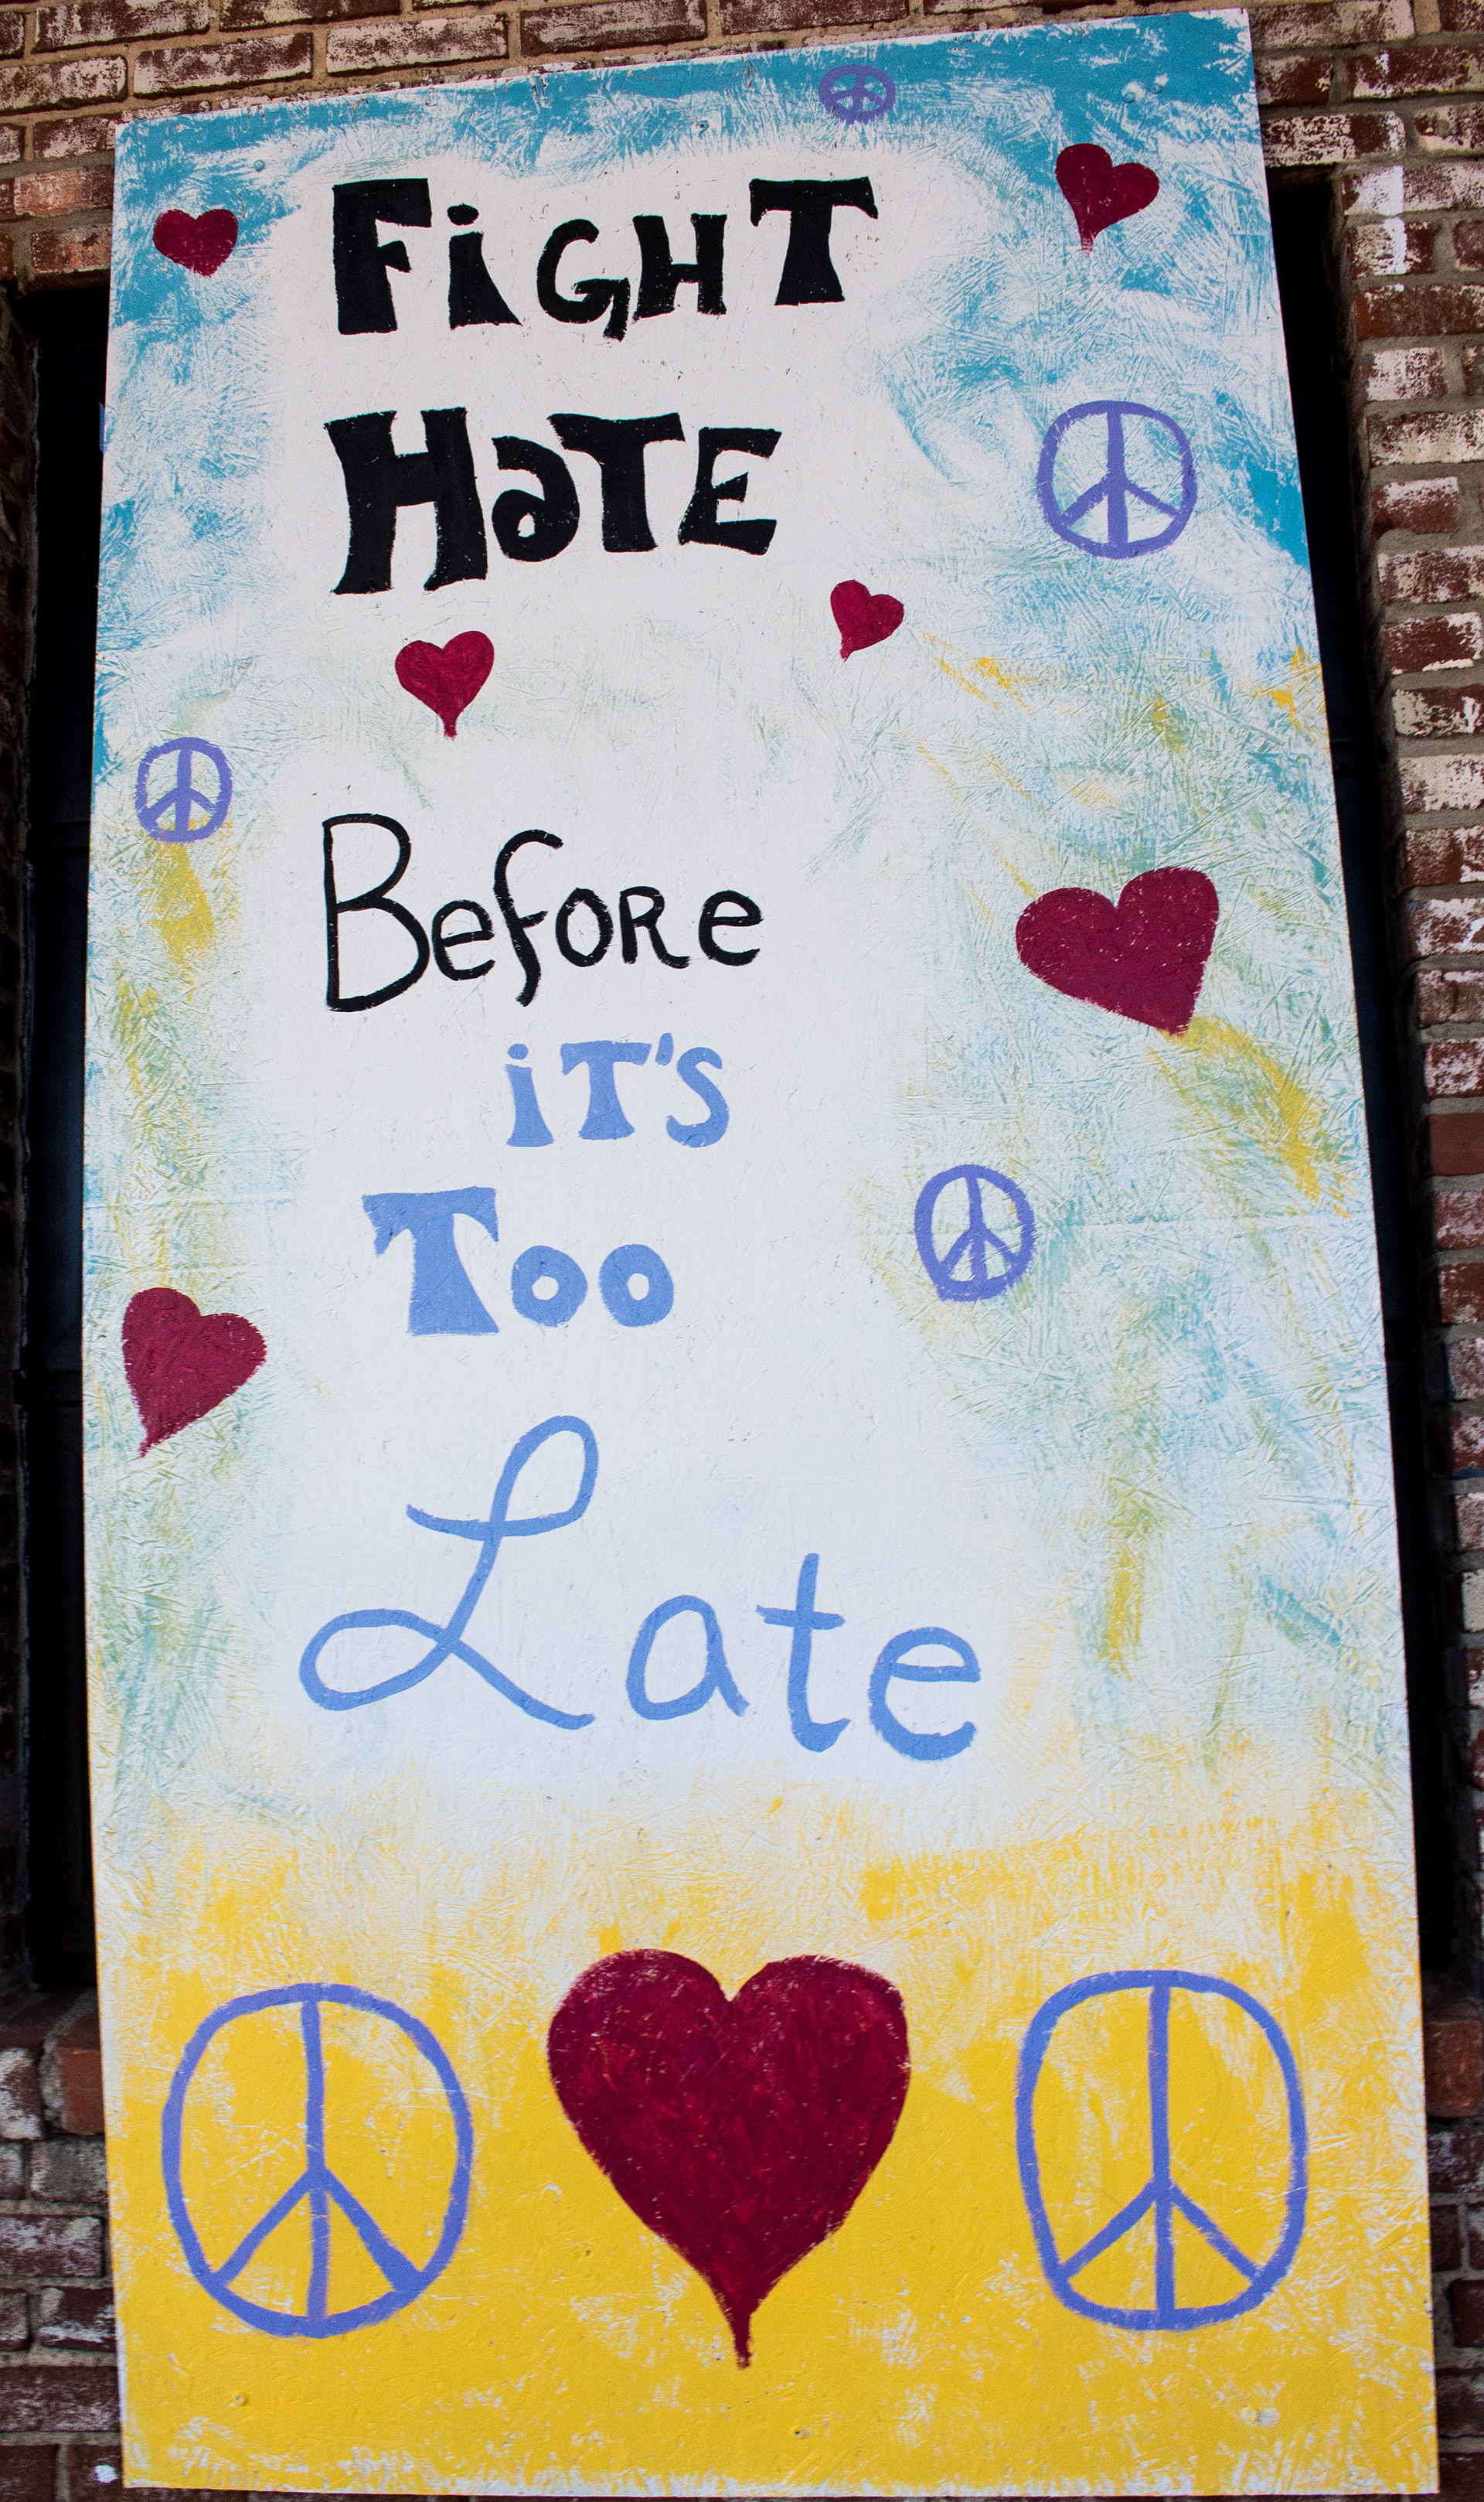 FiGHT
HaTE
Before
iT'S
Too
Late